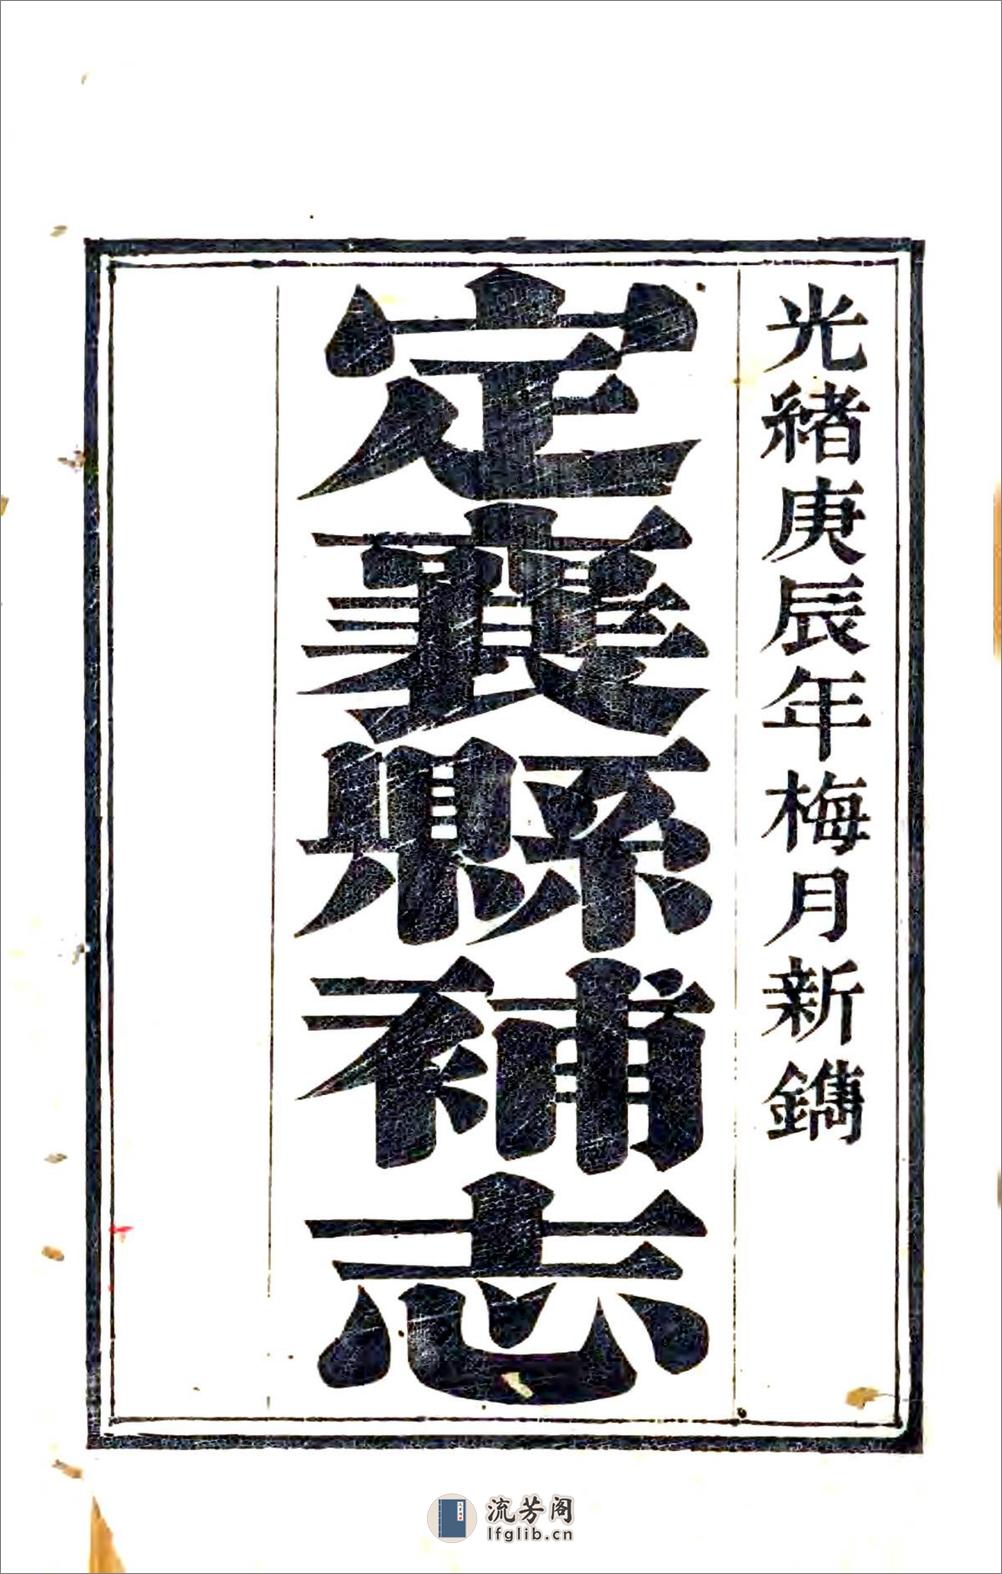 光緒庚辰年梅月新鐫
定襄縣補志
流芳阁
lfglib.cn